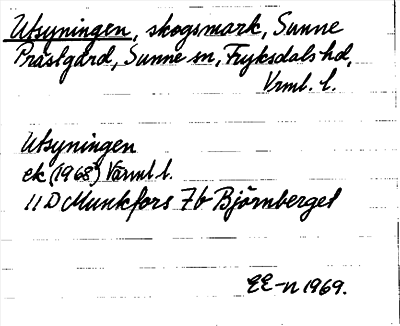 Utsyningen, skogsmark, Sunne
Prästgård, Sunne sn, Fryksdals hd,
Vrml. l.
Utsyningen
ek (1968) Värml l.
11D Munkfors 7b Björnberget
EE-n 1969.